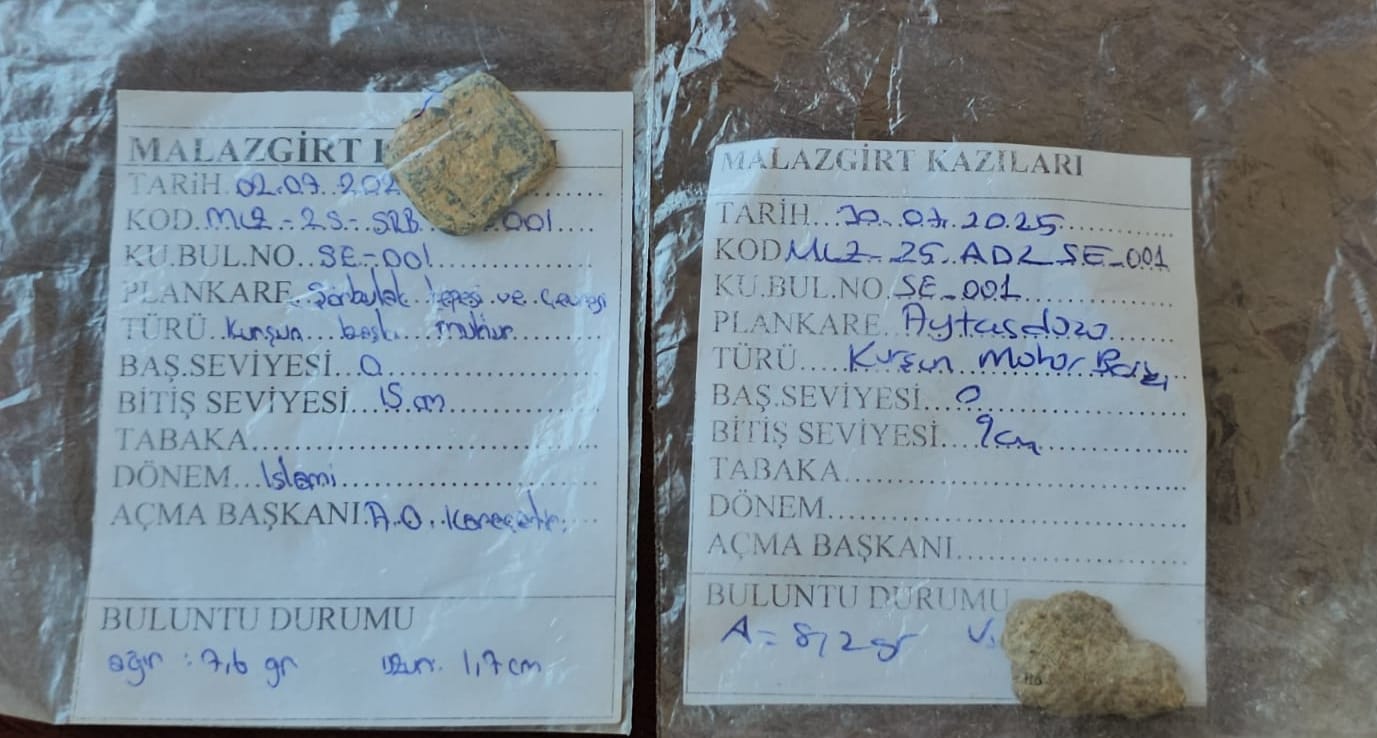 MALAZGİRT
TARİH. 02.07.202
KOD. MLZ-25-SRB 001
KU.BUL.NO. SE-001
PLANKARE. Sarbulak tepesi ve Çevresi
TÜRÜ. Kurşun baskı mühür
BAŞ.SEVİYESİ. 0
BİTİŞ SEVİYESİ. 15 cm
TABAKA
DÖNEM. İslami
AÇMA BAŞKANI. A.O.
BULUNTU DURUMU
ağır : 7,6 gr uzun. 1,7 cm
MALAZGİRT KAZILARI
TARİH. 30.07.2025
KOD MLZ-25 ADZ SE-001
KU.BUL.NO. SE-001
PLANKARE.
TÜRÜ. Kurşun Mühür Baskı
BAŞ.SEVİYESİ. 0
BİTİŞ SEVİYESİ. 9cm
TABAKA
DÖNEM
AÇMA BAŞKANI
BULUNTU DURUMU
A= 8,2 gr